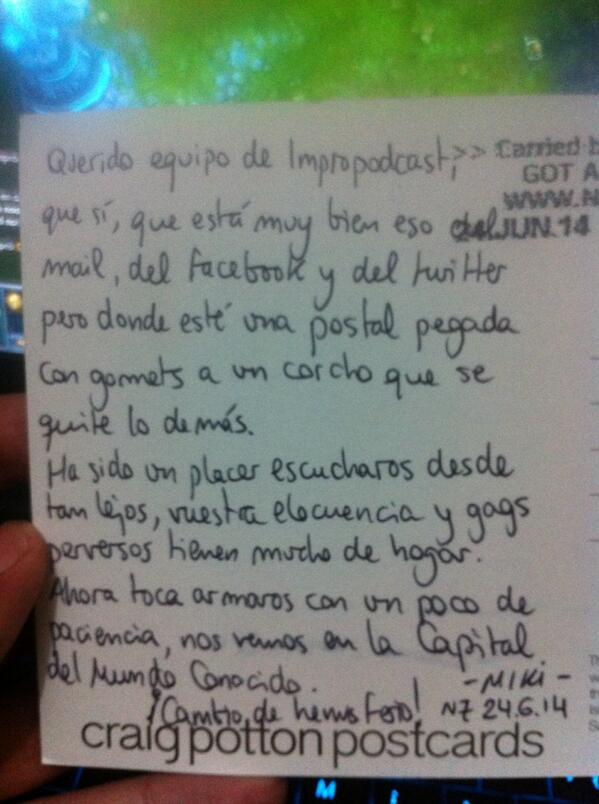 Querido equipo de Impropodcast;
>> Carried b
GOT A
WWW.N
24 JUN.14
que sí, que está muy bien eso del
mail, del facebook y del twitter
pero donde esté una postal pegada
con gomets a un corcho que se
quite lo demás.
Ha sido un placer escucharos desde
tan lejos, vuestra elocuencia y gags
perversos tienen mucho de hogar.
Ahora toca armaros con un poco de
paciencia, nos vemos en la Capital
del Mundo Conocido.
- MIKI -
¡Cambio de hemisferio! NZ 24.6.14
craig potton postcards
M